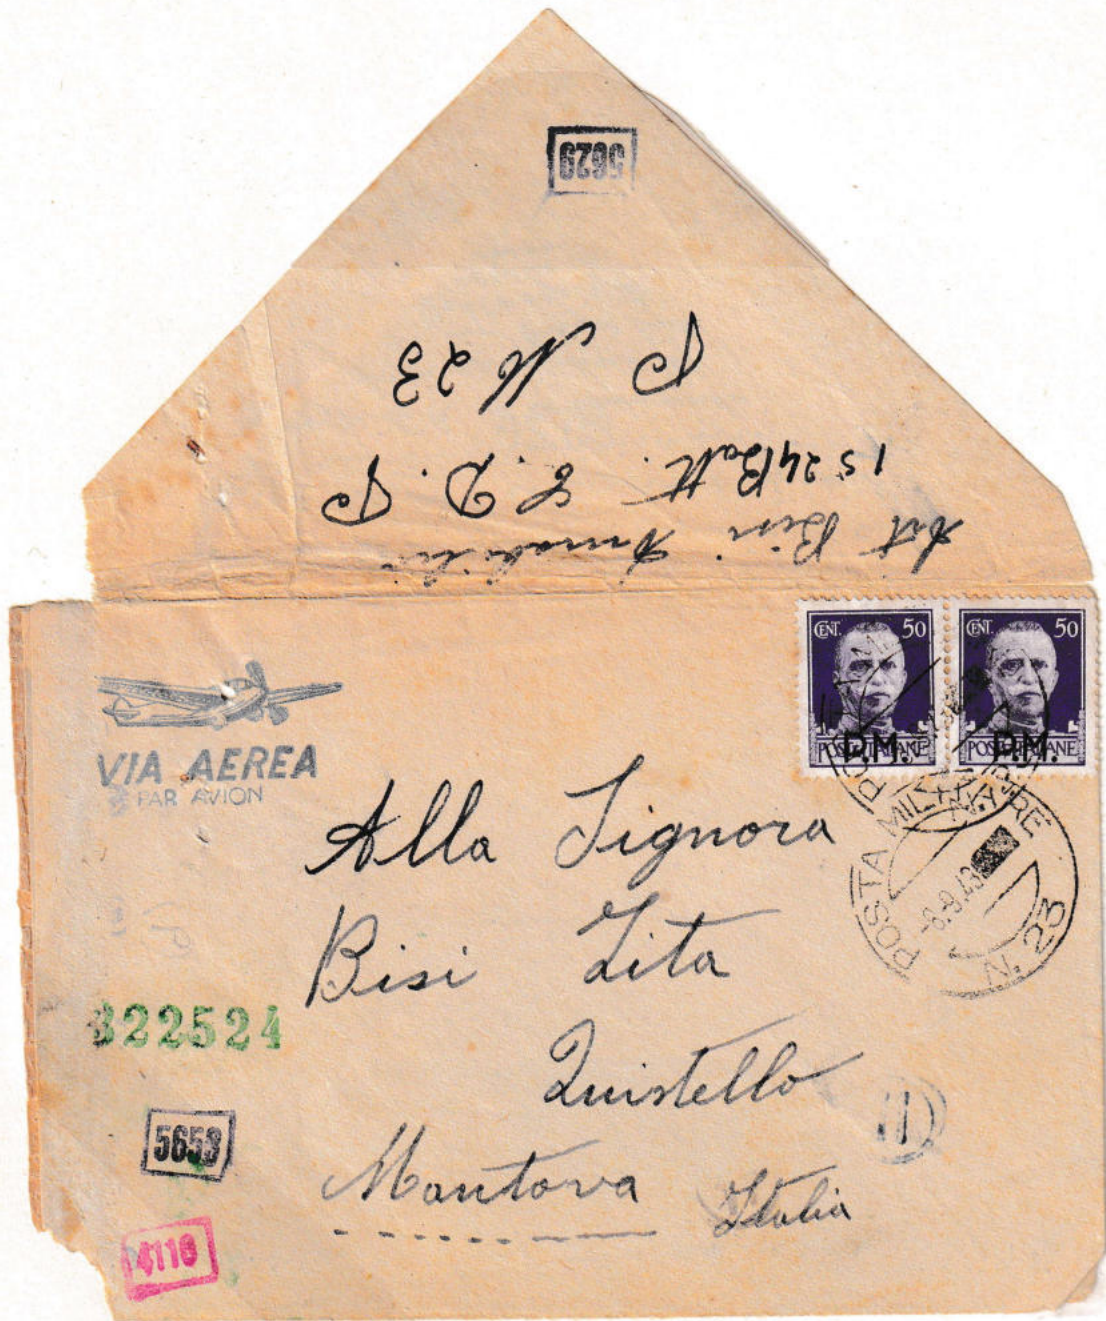 5629
P M 23
1524 Batt. E. D. P
Art Bisi
CENT. 50
POSTE ITALIANE
P.M.
CENT. 50
POSTE ITALIANE
P.M.
VIA AEREA
PAR AVION
POSTA MILITARE
N. 23
-8.9.43
Alla Signora
Bisi Zita
Quistello
Mantova Italia
322524
5653
4110